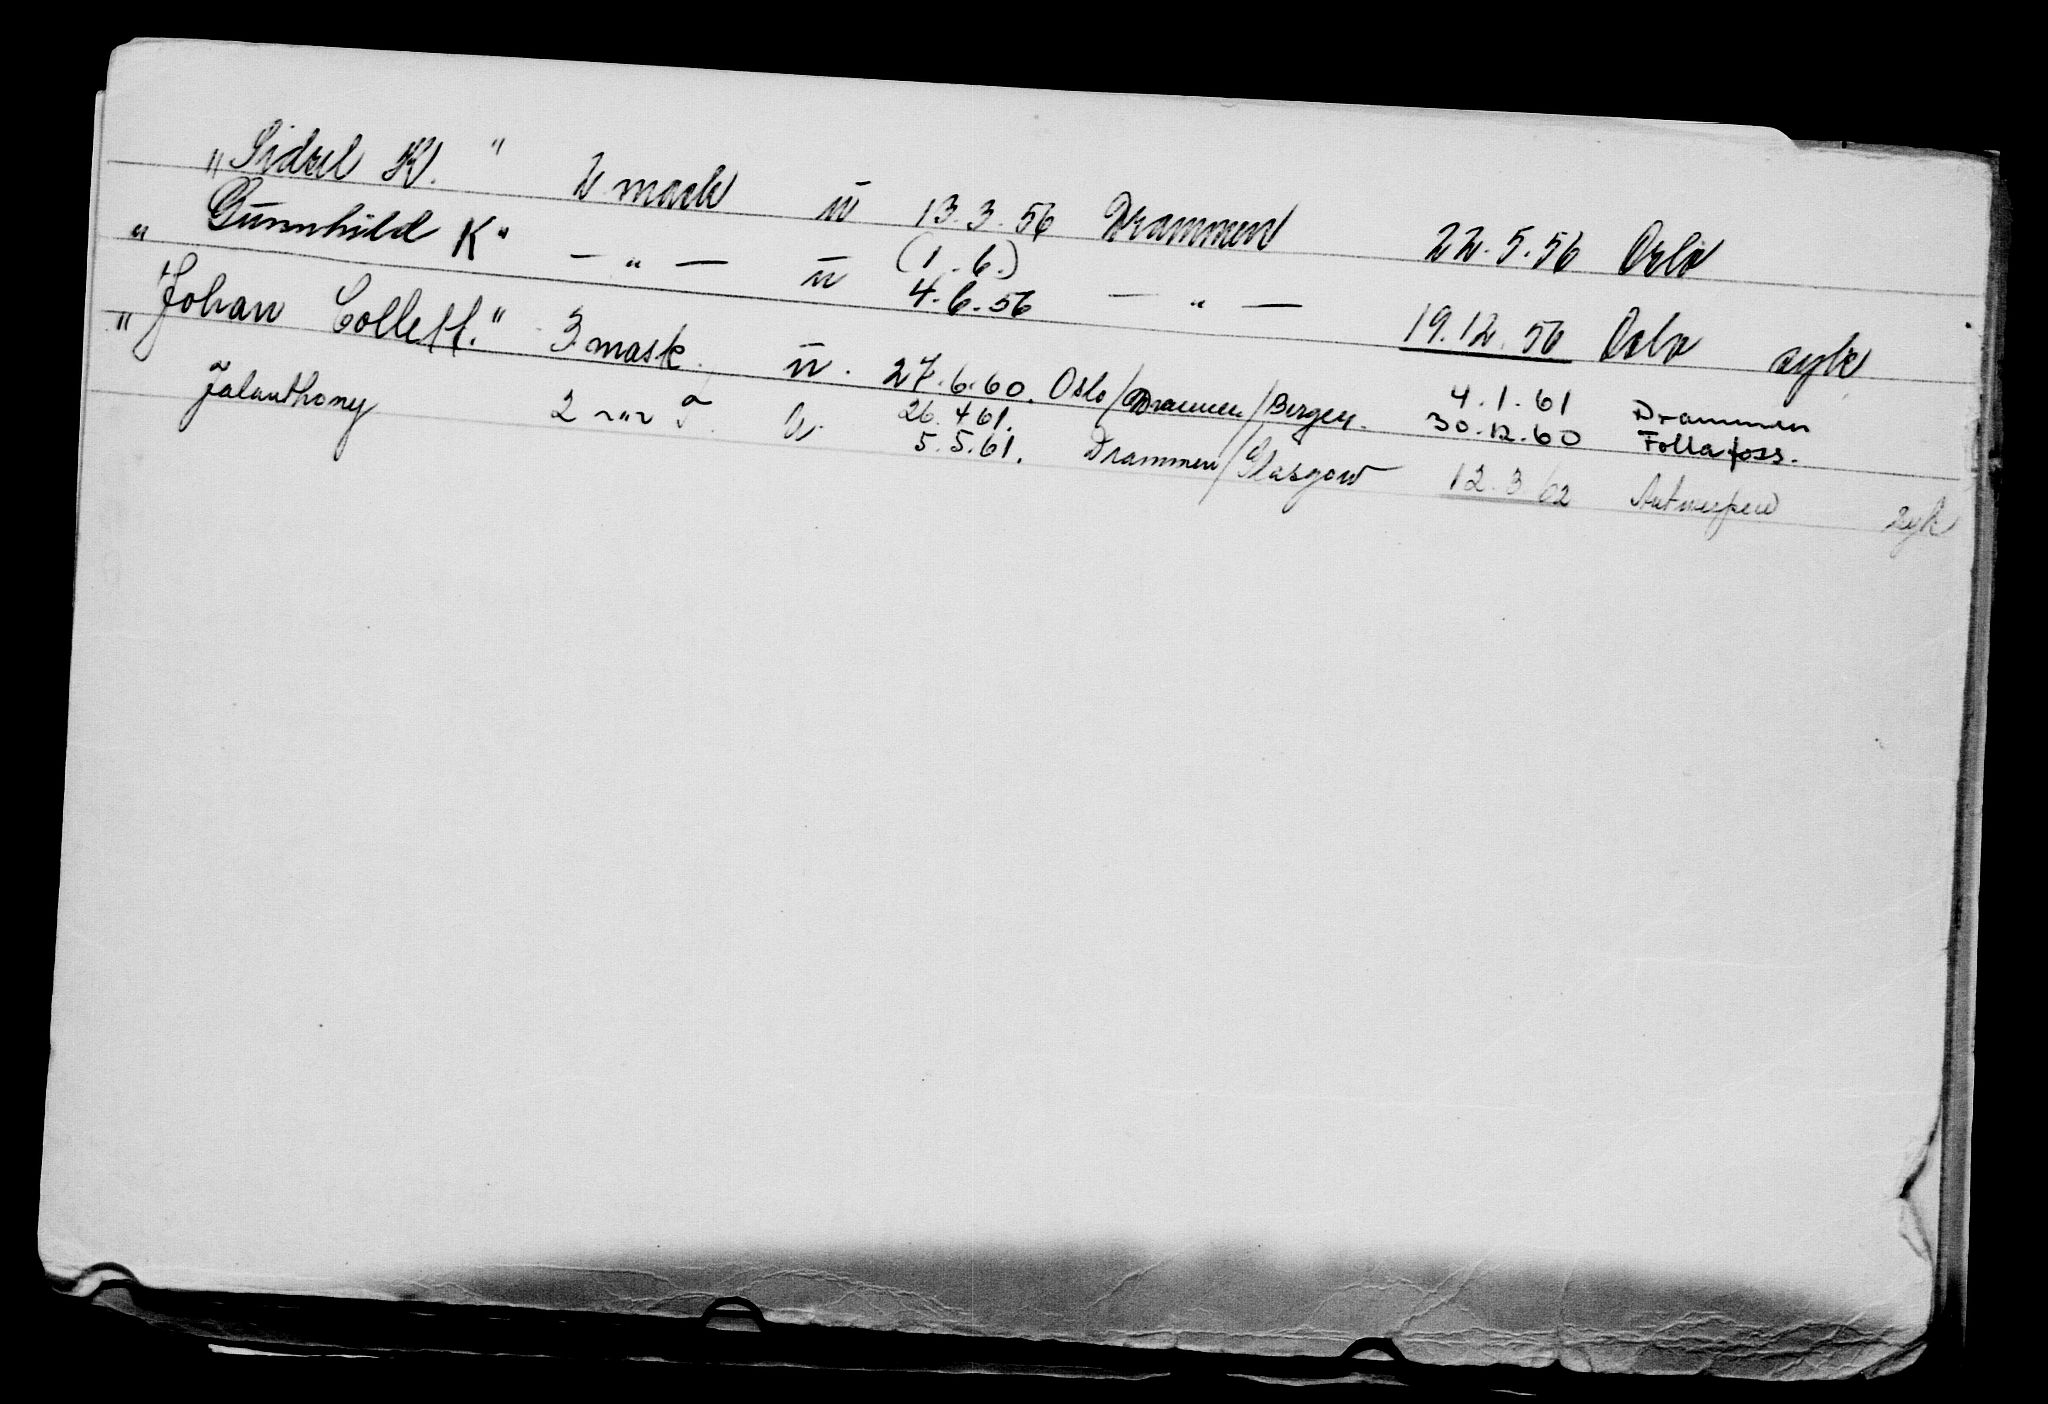 "Sidsel K." 2 mask ü 13.3.56 Drammen 22.5.56 Oslo
"Gunnhild K" — " — ü (1.6.) 4.6.56 — " — 19.12.56 Oslo syk
"Johan Collett." 3 mask. ü. 27.6.60. Oslo/Drammen/Bergen. 4.1.61 Drammen
30.12.60 Follafoss.
Jalanthony 2 ~"~ T. U. 26.4.61. 5.5.61. Drammen/Glasgow 12.3.62 Antwerpen syk